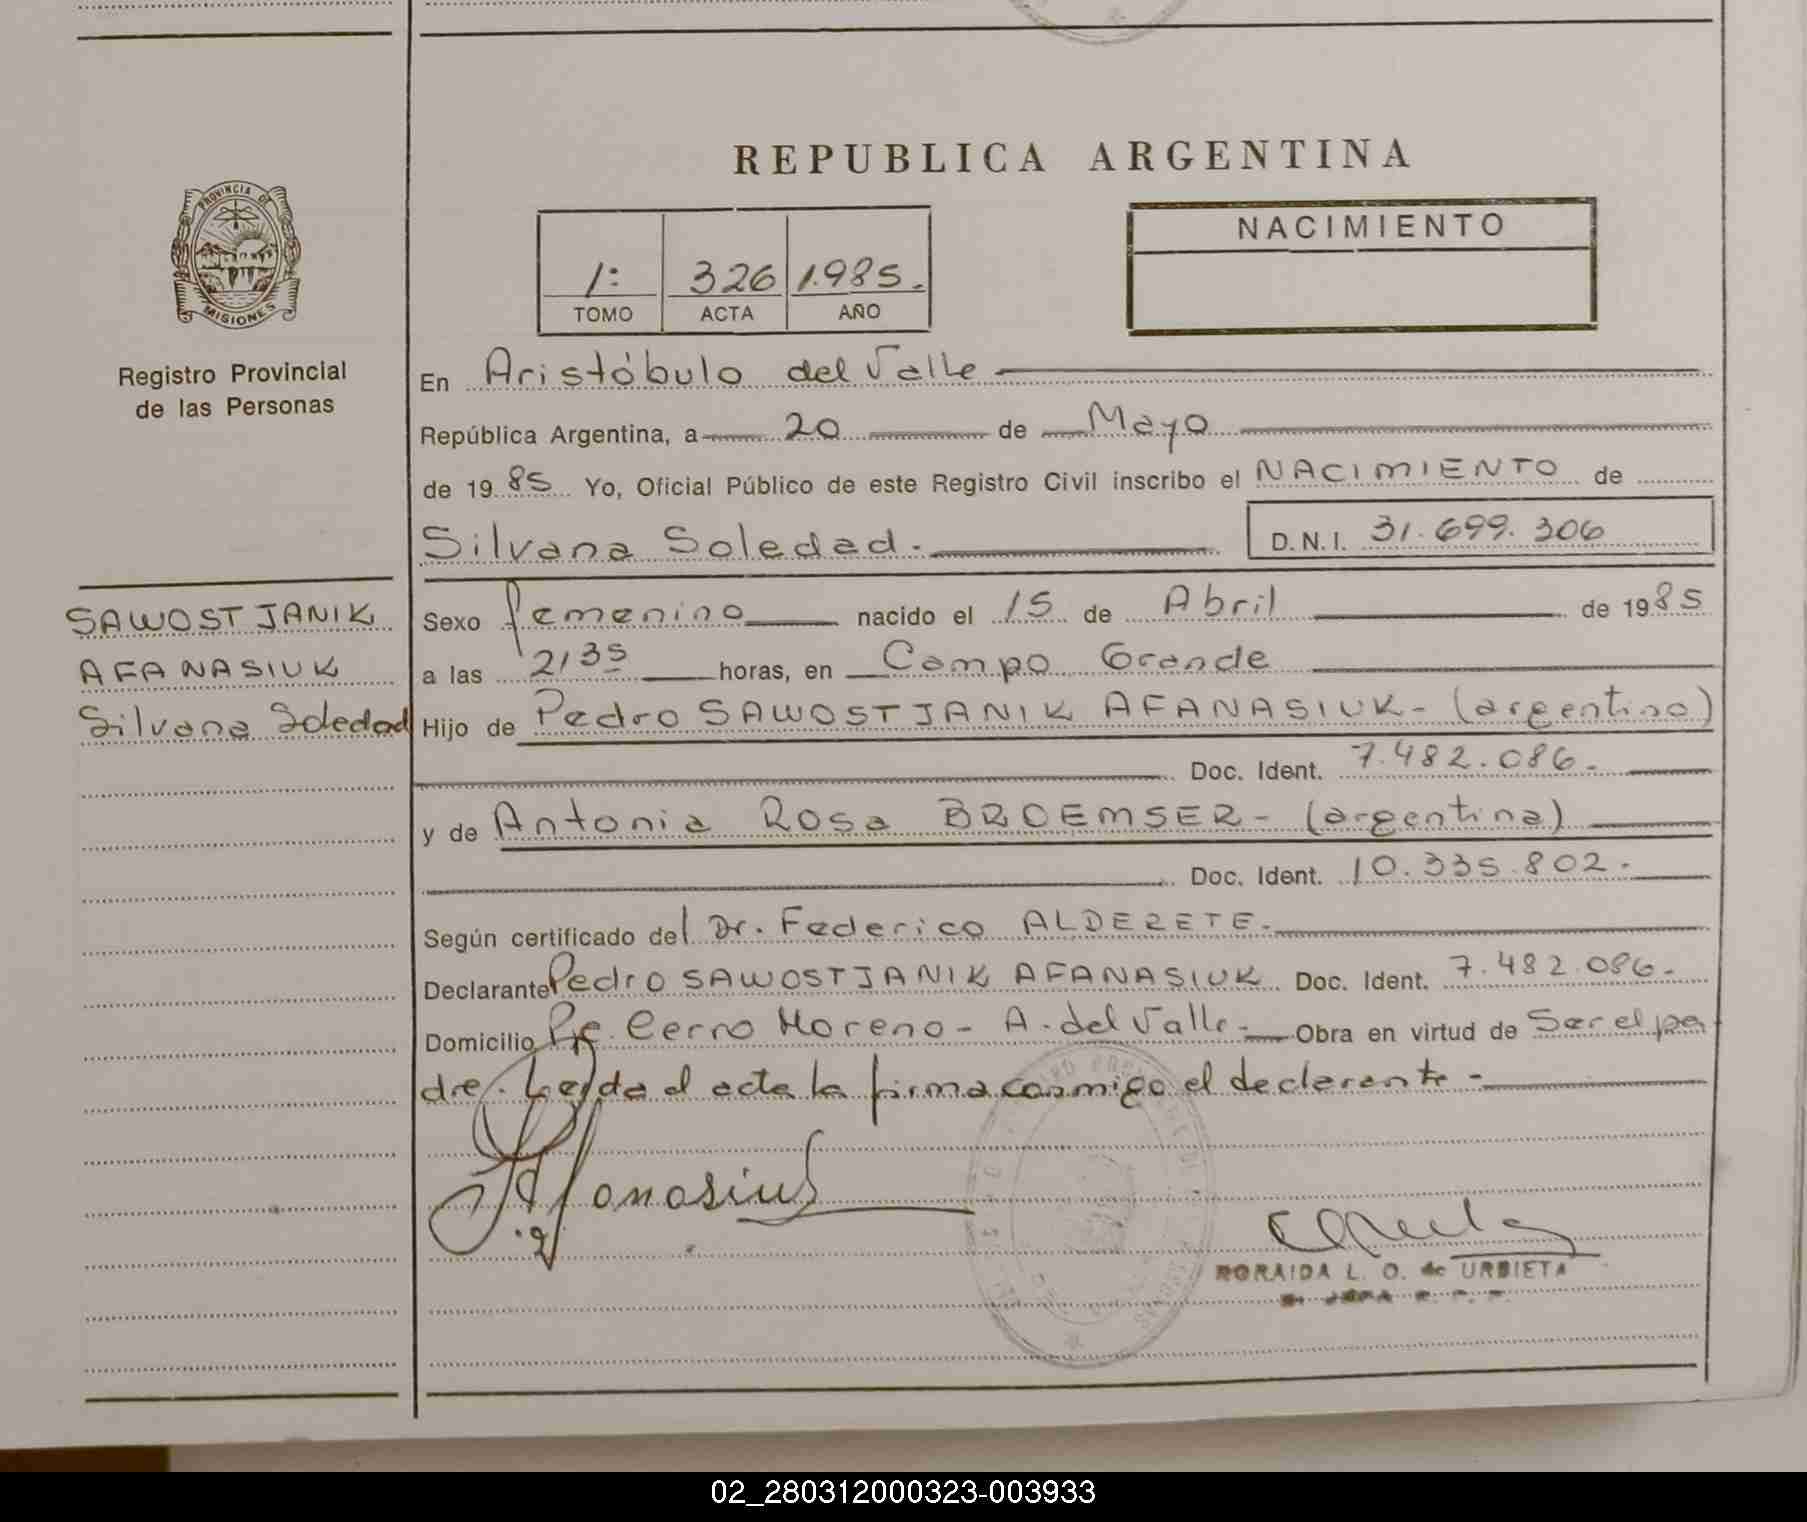 REPUBLICA ARGENTINA
PROVINCIA DE
MISIONES
Registro Provincial
de las Personas
1: 326 1.985.
TOMO ACTA AÑO
NACIMIENTO
En Aristóbulo del Valle
República Argentina, a 20 de Mayo
de 1985 Yo, Oficial Público de este Registro Civil inscribo el NACIMIENTO de
Silvana Soledad.- D.N.I. 31.699.306
SAWOSTJANIK
AFANASIUK
Silvana Soledad
Sexo femenino nacido el 15 de Abril de 1985
a las 2135 horas, en Campo Grande
Hijo de Pedro SAWOSTJANIK AFANASIUK- (argentino)
Doc. Ident. 7.482.086.-
y de Antonia Rosa BROEMSER- (argentina)
Doc. Ident. 10.335.802.-
Según certificado del Dr. Federico ALDERETE.-
Declarante Pedro SAWOSTJANIK AFANASIUK Doc. Ident. 7.482.086.-
Domicilio Cerro Moreno- A. del Valle.- Obra en virtud de Ser el pa
dre. Leída el acta la firma conmigo el declarante-
Afanasiuk
RORAIDA L. O. de URBIETA
02_280312000323-003933